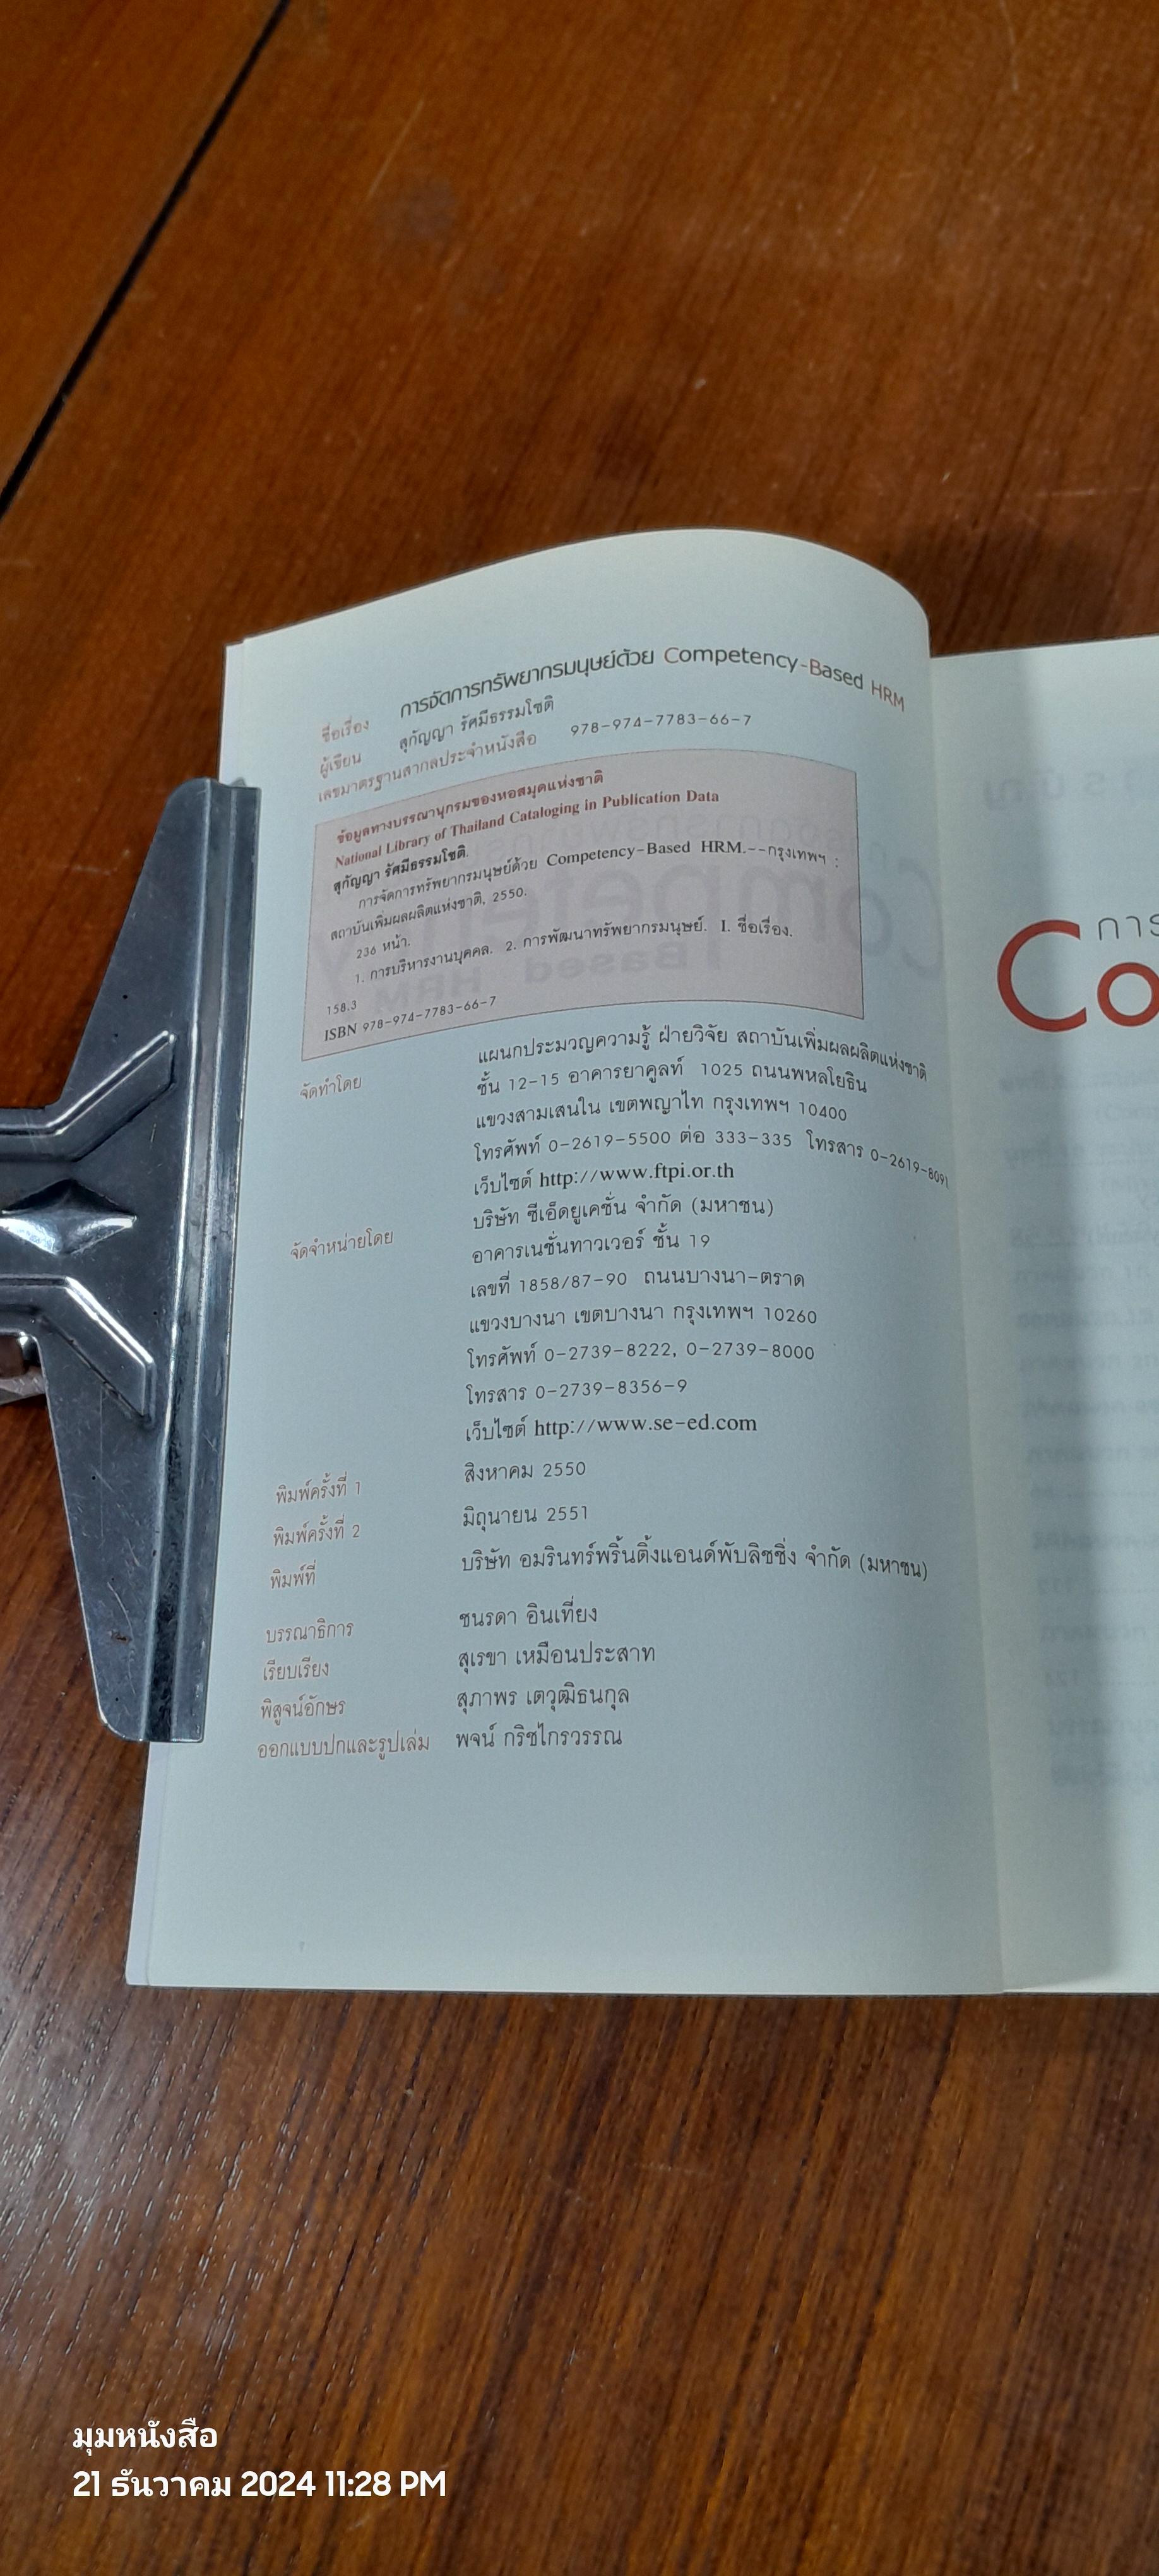 ชื่อเรื่อง การจัดการทรัพยากรมนุษย์ด้วย Competency-Based HRM
ผู้เขียน สุกัญญา รัศมีธรรมโชติ
เลขมาตรฐานสากลประจำหนังสือ 978-974-7783-66-7
ข้อมูลทางบรรณานุกรมของหอสมุดแห่งชาติ
National Library of Thailand Cataloging in Publication Data
สุกัญญา รัศมีธรรมโชติ.
การจัดการทรัพยากรมนุษย์ด้วย Competency-Based HRM.--กรุงเทพฯ :
สถาบันเพิ่มผลผลิตแห่งชาติ, 2550.
236 หน้า.
1. การบริหารงานบุคคล. 2. การพัฒนาทรัพยากรมนุษย์. I. ชื่อเรื่อง.
158.3
ISBN 978-974-7783-66-7
จัดทำโดย แผนกประมวญความรู้ ฝ่ายวิจัย สถาบันเพิ่มผลผลิตแห่งชาติ
ชั้น 12-15 อาคารยาคูลท์ 1025 ถนนพหลโยธิน
แขวงสามเสนใน เขตพญาไท กรุงเทพฯ 10400
โทรศัพท์ 0-2619-5500 ต่อ 333-335 โทรสาร 0-2619-8091
เว็บไซต์ http://www.ftpi.or.th
จัดจำหน่ายโดย บริษัท ซีเอ็ดยูเคชั่น จำกัด (มหาชน)
อาคารเนชั่นทาวเวอร์ ชั้น 19
เลขที่ 1858/87-90 ถนนบางนา-ตราด
แขวงบางนา เขตบางนา กรุงเทพฯ 10260
โทรศัพท์ 0-2739-8222, 0-2739-8000
โทรสาร 0-2739-8356-9
เว็บไซต์ http://www.se-ed.com
พิมพ์ครั้งที่ 1 สิงหาคม 2550
พิมพ์ครั้งที่ 2 มิถุนายน 2551
พิมพ์ที่ บริษัท อมรินทร์พริ้นติ้งแอนด์พับลิชชิ่ง จำกัด (มหาชน)
บรรณาธิการ ชนรดา อินเที่ยง
เรียบเรียง สุเรขา เหมือนประสาท
พิสูจน์อักษร สุภาพร เตวุฒิธนกุล
ออกแบบปกและรูปเล่ม พจน์ กริชไกรวรรณ
การ
Co
มุมหนังสือ
21 ธันวาคม 2024 11:28 PM